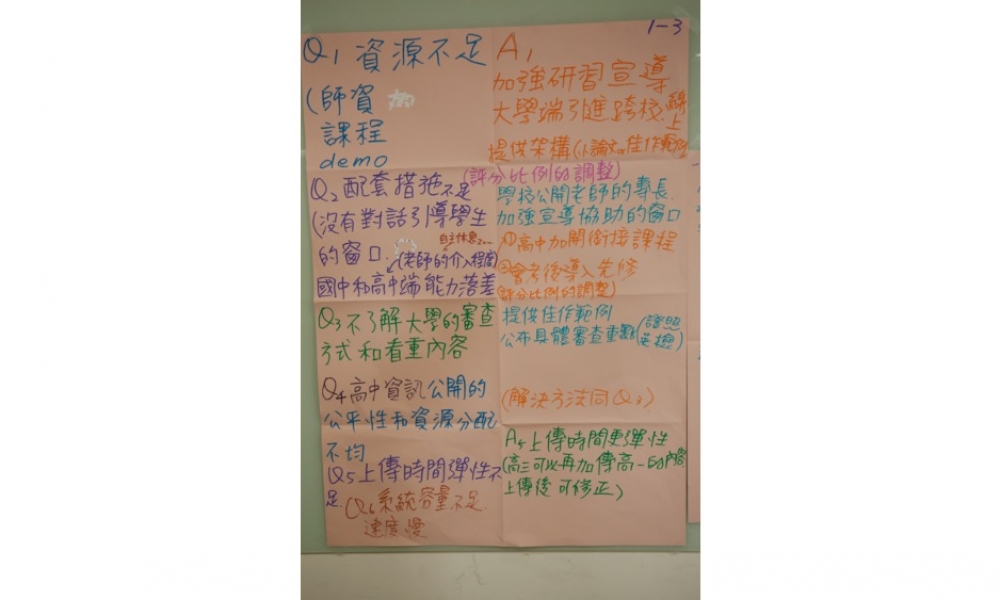 1-3
Q1 資源不足
(師資
課程
demo
Q2 配套措施不足
(沒有對話引導學生
的窗口.
自主休息?...
(老師的介入程度)
國中和高中端能力落差
Q3 不了解大學的審查
方式和看重內容
Q4 高中資訊公開的
公平性和資源分配
不均
Q5 上傳時間彈性不
足.
(Q6 系統容量不足.
速度慢
A1
加強研習宣導
大學端引進跨校.線上
提供架構(小論文.佳作範例
(評分比例的調整)
學校公開老師的專長.
加強宣導協助的窗口
①高中加開銜接課程
②會考後導入先修
(評分比例的調整)
提供佳作範例
公布具體審查重點(證照
英檢)
(解決方法同Q3)
A5 上傳時間更彈性
(高三可以再加傳高一的內容
上傳後可修正)